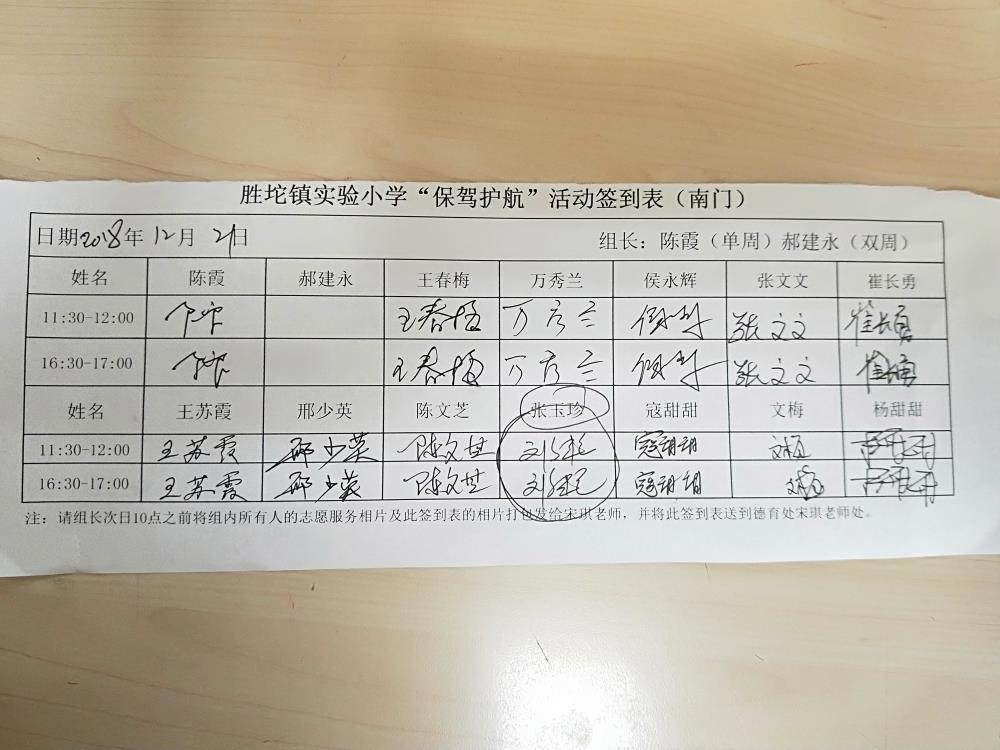 胜坨镇实验小学“保驾护航”活动签到表（南门）
日期2018年12月21日 组长：陈霞（单周）郝建永（双周）
姓名 陈霞 郝建永 王春梅 万秀兰 侯永辉 张文文 崔长勇
11:30-12:00 王春梅 万秀兰 张文文 崔长勇
16:30-17:00 王春梅 万秀兰 张文文 崔长勇
姓名 王苏霞 邢少英 陈文芝 张玉珍 寇甜甜 文梅 杨甜甜
11:30-12:00 王苏霞 邢少英 陈文芝 寇甜甜 文梅
16:30-17:00 王苏霞 邢少英 陈文芝 寇甜甜 文梅
注：请组长次日10点之前将组内所有人的志愿服务相片及此签到表的相片打包发给宋琪老师，并将此签到表送到德育处宋琪老师处。